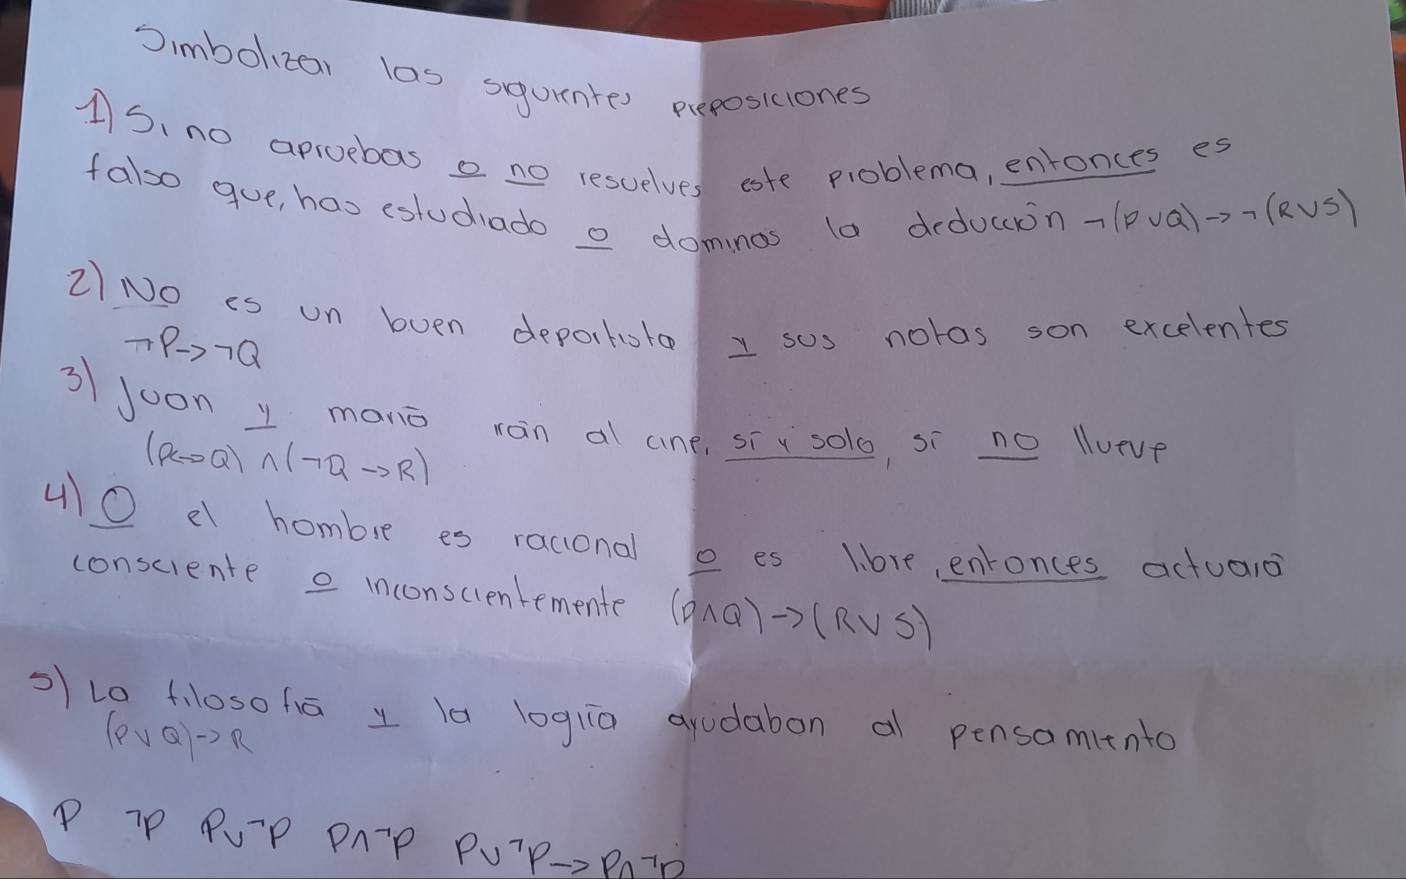 Simbolizar las siguientes preposiciones
1) Si no apruebas o no resuelves este problema, entonces es
falso que, has estudiado o dominas la deducción ¬(P∨Q)→¬(R∨S)
2) No es un buen deportista y sus notas son excelentes
¬P→¬Q
3) Juan y mario irán al cine, sí y solo, sí no llueve
(P↔Q)∧(¬Q→R)
4) O el hombre es racional o es libre, entonces actuará
consciente o inconscientemente (P∧Q)→(R∨S)
5) La filosofía y la logica ayudaban al pensamiento
(P∨Q)→R
P ¬P P∨¬P P∧¬P P∨¬P→P∧¬P